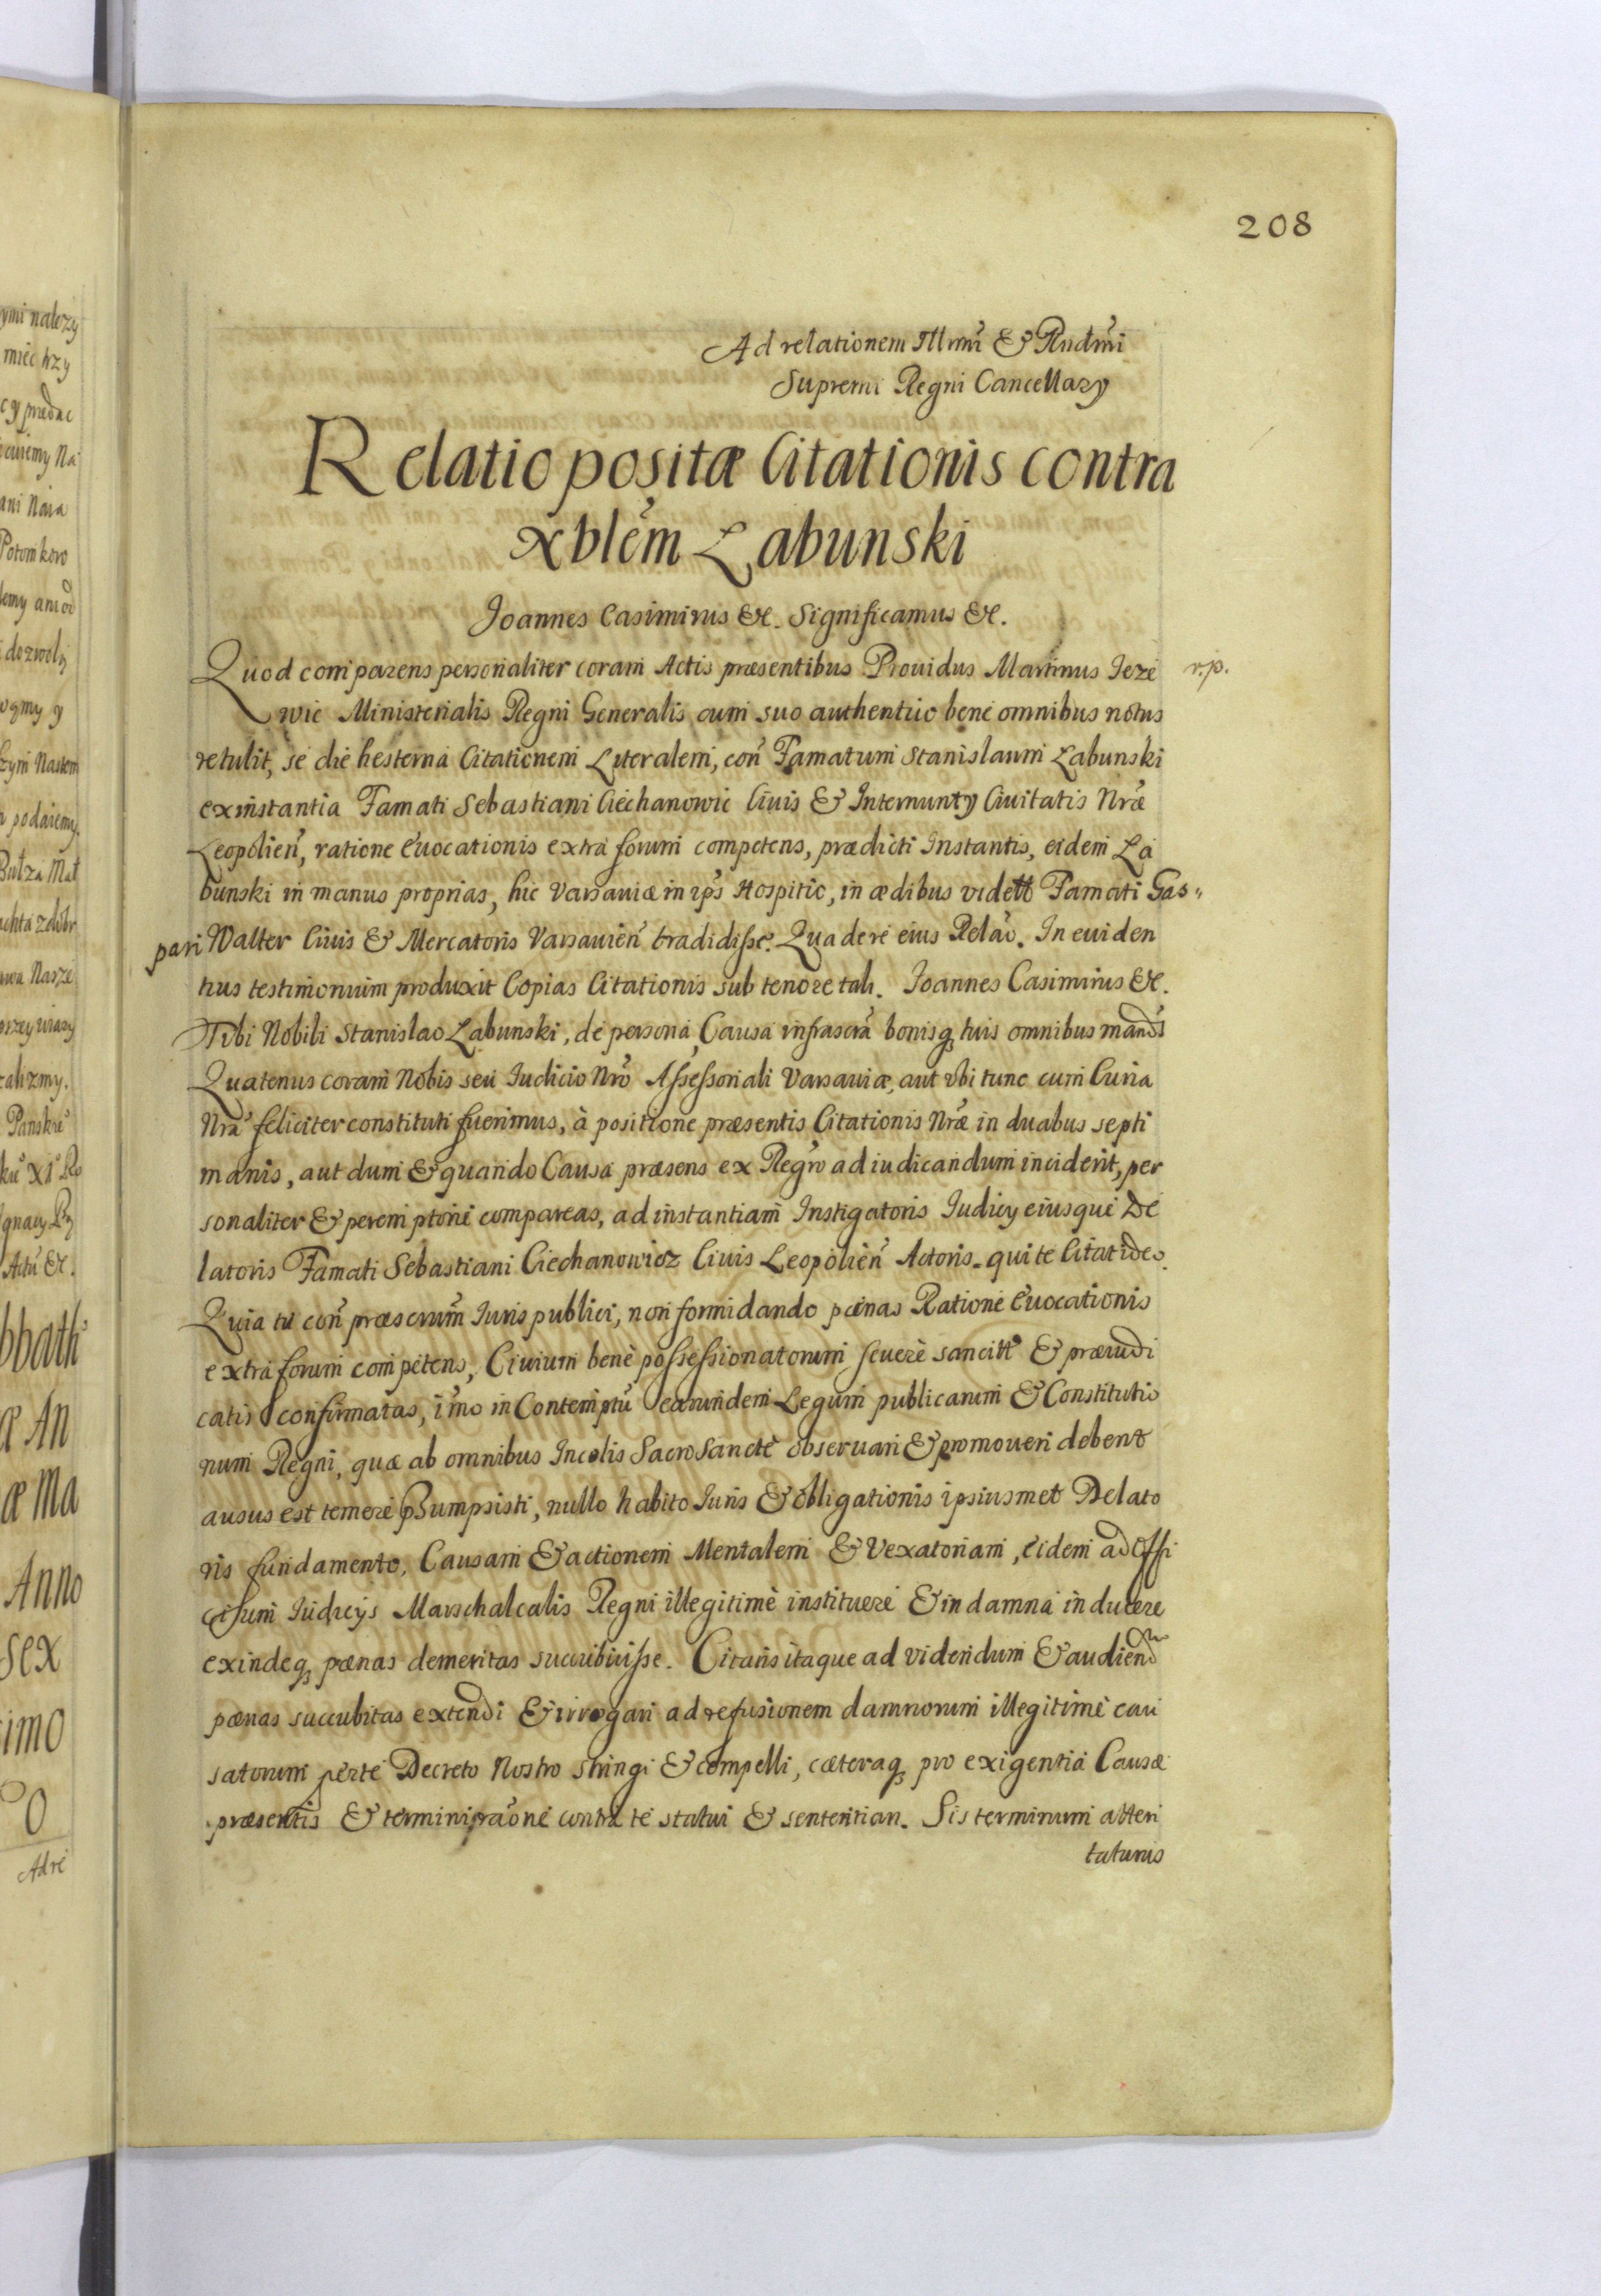 208
Ad relationem Illmi & Rndmi
Supremi Regni Cancellarÿ
Relatio positæ Citationis contra
xblem Łabunski
Joannes Casimirus &c. Significamus &c.
Quod comparens personaliter coram Actis præsentibus Prouidus Martinus Jeze
r.p.
wic Ministerialis Regni Generalis, cum suo authentico bene omnibus notus
retulit, se die hesterna Citationem Literalem, con Famatum Stanislaum Łabunski
exinstantia Famati Sebastiani Ciechanowic Ciuis & Internuntÿ Ciuitatis Nræ
Leopolien, ratione Euocationis extra forum competens, prædicti Instantis, eidem Ła
bunski in manus proprias, hic Varsauiæ in ips Hospitio, in ædibus vidett Famati Gas-
pari Walter Ciuis & Mercatoris Varsauien tradidisse. Qua de re eius Relao. In euiden
tius testimonium produxit Copias Citationis sub tenore tali. Joannes Casimirus &c.
Tibi Nobili Stanislao Łabunski, de persona, Causa infrascra bonisq tuis omnibus mands
Quatenus coram Nobis seu Iudicio Nro Assessoriali Varsauiæ, aut vbi tunc cum Curia
Nra feliciter constituti fuerimus, à positione præsentis Citationis Nræ in duabus septi
manis, aut dum & quando Causa præsens ex Regro ad iudicandum inciderit, per
sonaliter & peremptorie compareas, ad instantiam Instigatoris Iudicÿ eiusque De
latoris Famati Sebastiani Ciechanowicz Ciuis Leopolien Actoris. qui te Citat ideo.
Quia tu con præscrum Iuris publici, non formidando pænas Ratione Euocationis
extra forum competens, Ciuium benè possessionatorum seuerè sancitt & præiudi
catis confirmatas, imo in Contemptu earundem Legum publicarum & Constitutio
num Regni, quæ ab omnibus Incolis SacroSanctè obseruari & promoueri debent
ausus est temere Psumpsisti, nullo habito Iuris & obligationis ipsiusmet Delato
ris fundamento, Causam & actionem Mentalem & Vexatoriam, eidem ad Offi
cium Iudicÿs Marschalcalis Regni illegitimè instituere & in damna inducere
exindeq pænas demeritas succubuisse. Citaris itaque ad videndum & audiend
pænas succubitas extendi & irrogari ad refusionem damnorum illegitimè cau
satorum per te Decreto Nostro stringi & compelli, cæteraq pro exigentia Causæ
præsentis & termini raone contra te statui & sententian. Sis terminum atten
taturus